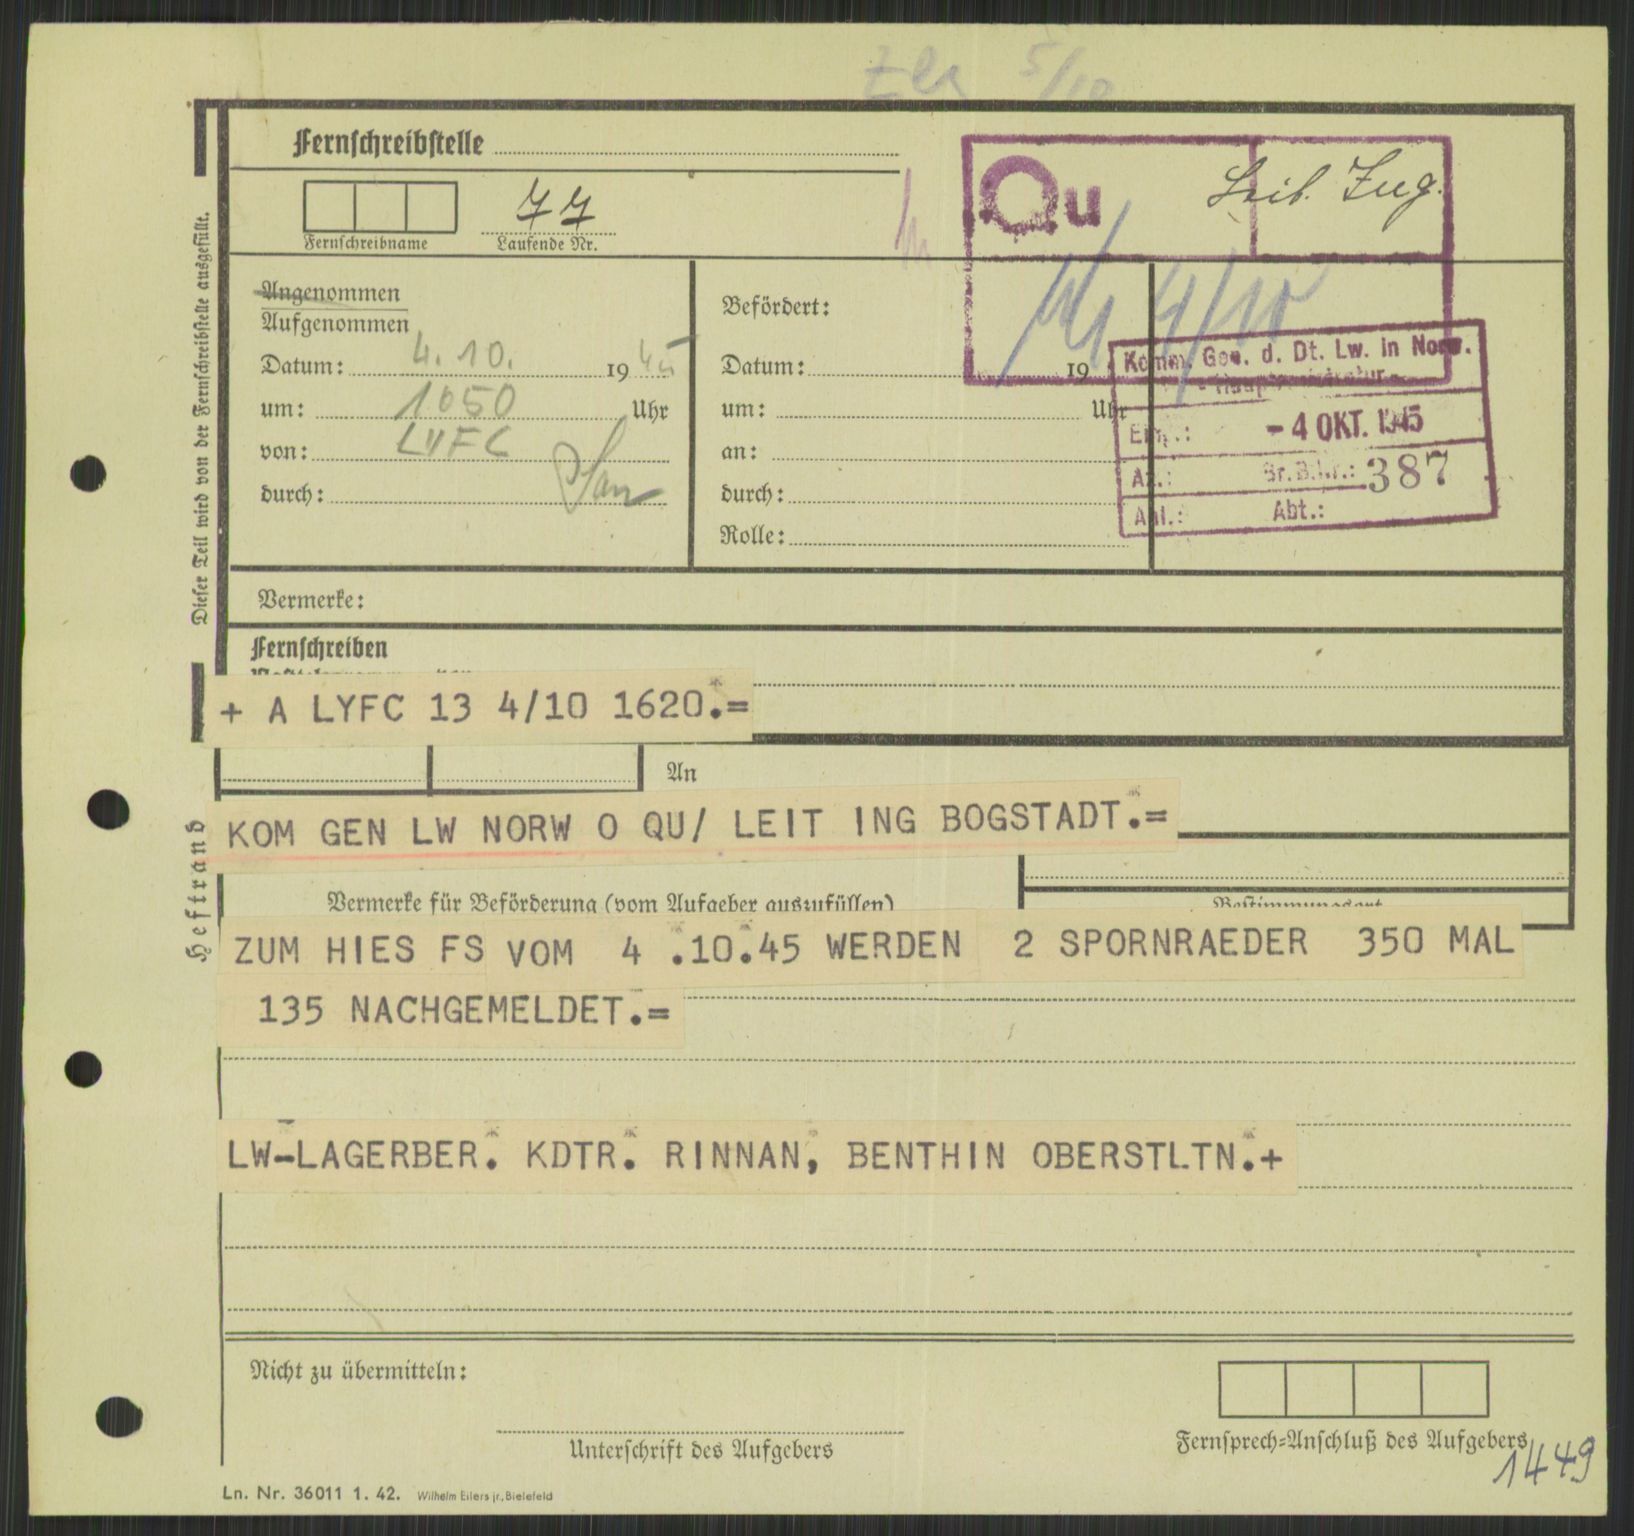 5/10
Fernschreibstelle
Qu
Leit. Ing.
77
Fernschreibname
Laufende Nr.
Dieser Teil wird von der Fernschreibstelle ausgefüllt.
Angenommen
Aufgenommen
Datum: 4. 10. 1945
um: 1050 Uhr
von: LYFC
durch:
Befördert:
Datum: 19
um: Uhr
an:
durch:
Rolle:
4/10
Komm. Gen. d. Dt. Lw. in Norw.
- Hauptregistratur -
Eing.: - 4 OKT. 1945
Az.: Br.B.Nr.: 387
Anl.: Abt.:
Vermerke:
Fernschreiben
+ A LYFC 13 4/10 1620.=
An
KOM GEN LW NORW O QU/ LEIT ING BOGSTADT.=
Heftrand
Vermerke für Beförderung (vom Aufgeber auszufüllen)
Bestimmungsort
ZUM HIES FS VOM 4 .10.45 WERDEN 2 SPORNRAEDER 350 MAL
135 NACHGEMELDET.=
LW-LAGERBER. KDTR. RINNAN, BENTHIN OBERSTLTN.+
Nicht zu übermitteln:
Unterschrift des Aufgebers
Fernsprech-Anschluß des Aufgebers
1449
Ln. Nr. 36011 1. 42. Wilhelm Eilers jr., Bielefeld